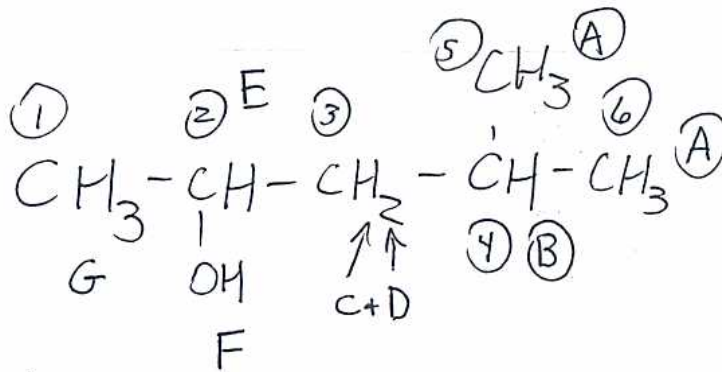 5 CH3 A
1 2 E 3 6
CH3 - CH - CH2 - CH - CH3 A
G OH C+D 4 B
F